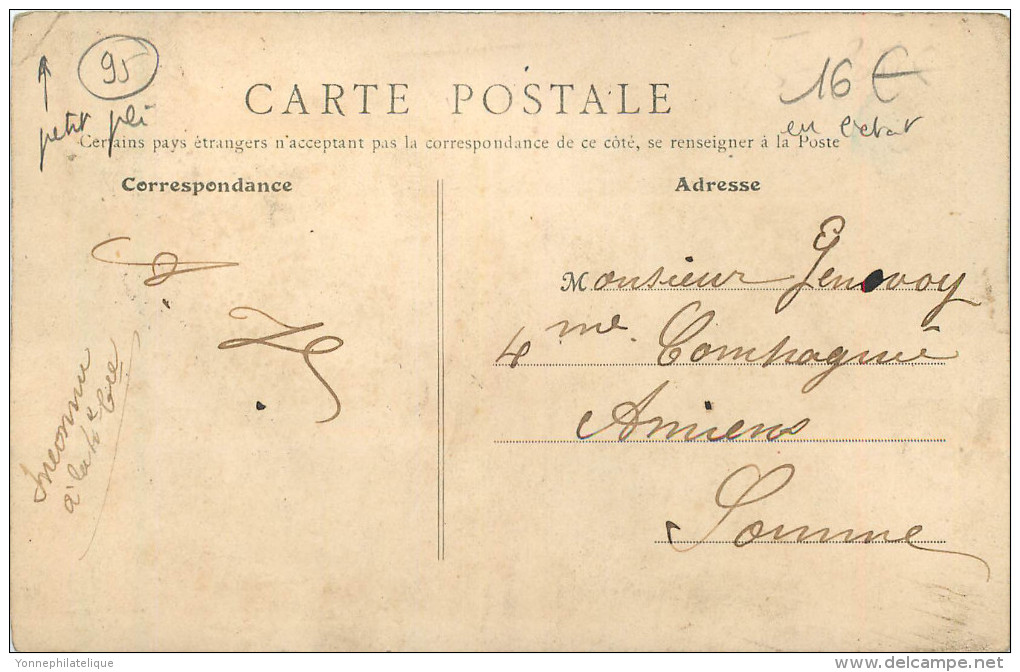 95
16 €
petit pli
en l'état
CARTE POSTALE
Certains pays étrangers n'acceptant pas la correspondance de ce côté, se renseigner à la Poste
Correspondance
Adresse
Monsieur Genovoy
4 me Compagnie
Amiens
Somme
Inconnu
à la 4e Cie
Yonnephilatelique
www.delcampe.net